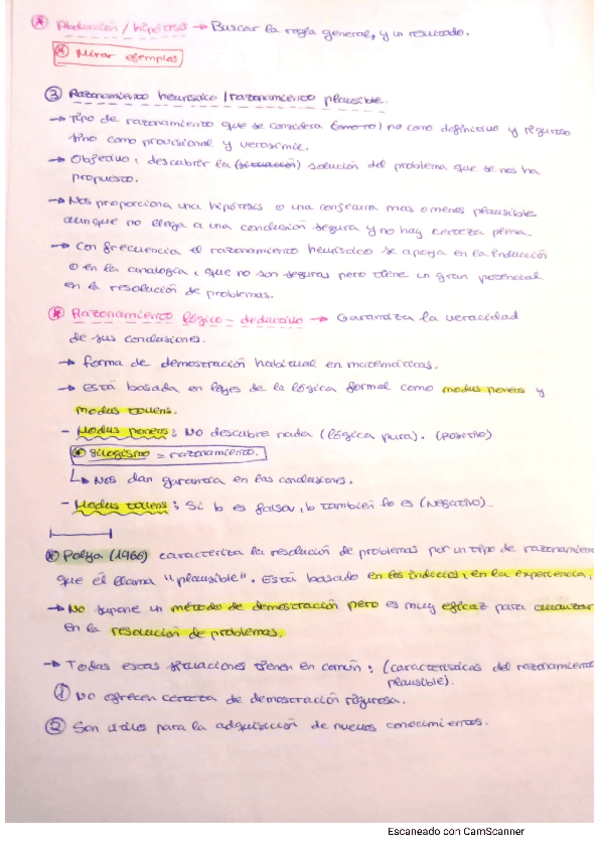 * Abducción / hipótesis → Buscar la regla general, y un resultado.
* Mirar ejemplos
③ Razonamiento heurístico / razonamiento plausible.
→ Tipo de razonamiento que se considera no como definitivo y riguroso
sino como provisional y verosímil.
→ Objetivo: descubrir la (situación) solución del problema que se nos ha
propuesto.
→ Nos proporciona una hipótesis o una conjetura mas o menos plausible
aunque no llega a una conclusión segura y no hay certeza plena.
→ Con frecuencia el razonamiento heurístico se apoya en la inducción
o en la analogía, que no son seguras pero tiene un gran potencial
en la resolución de problemas.
* Razonamiento lógico-deductivo → Garantiza la veracidad
de sus conclusiones.
→ forma de demostración habitual en matemáticas.
→ Está basada en leyes de la lógica formal como modus ponens y
modus tollens.
- Modus ponens: No descubre nada (lógica pura). (positivo)
* silogismo = razonamiento.
↳ Nos dan garantía en las conclusiones.
- Modus tollens: Si b es falsa, b también lo es (Negativo).
* Polya (1966) caracteriza la resolución de problemas por un tipo de razonamiento
que él llama "plausible". Está basado en los indicios, en la experiencia,
→ No supone un método de demostración pero es muy eficaz para avanzar
en la resolución de problemas.
→ Todas estas situaciones tienen en común: (características del razonamiento
plausible).
① No ofrecen certeza de demostración rigurosa.
② Son útiles para la adquisición de nuevos conocimientos.
Escaneado con CamScanner